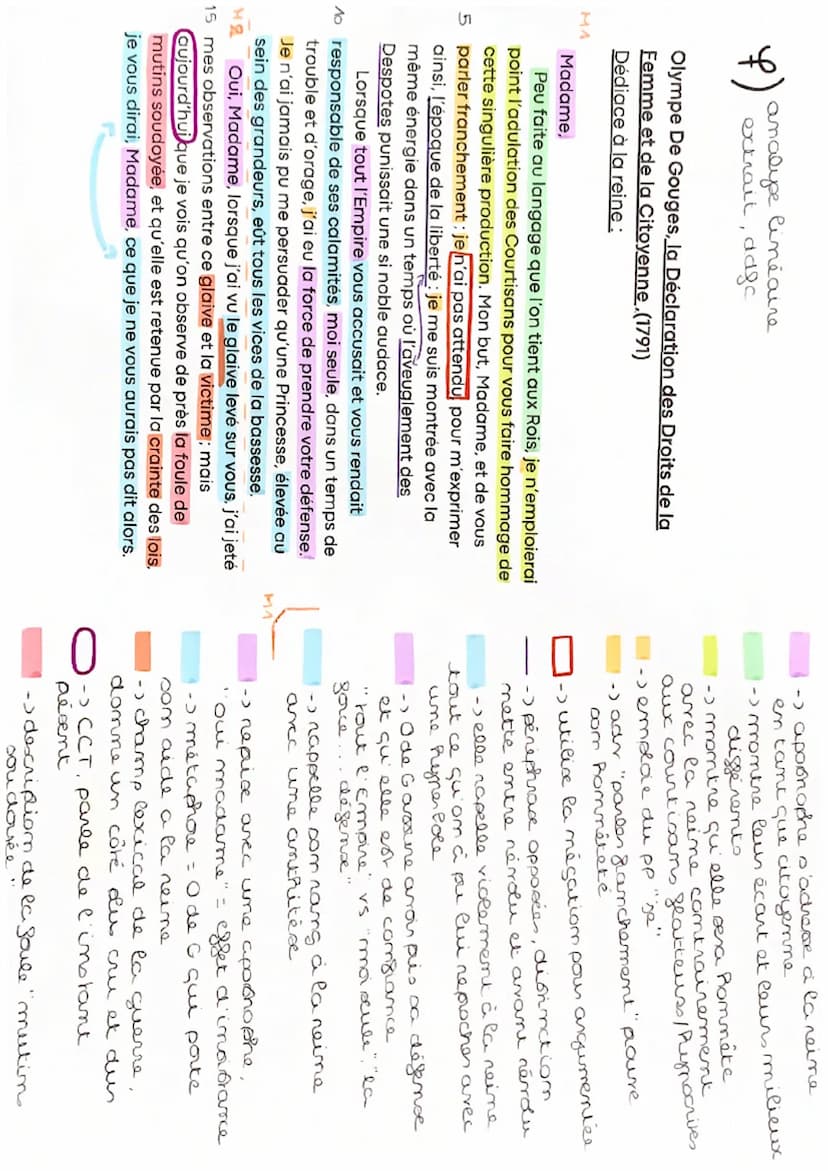 φ) analyse linéaire
extrait, ddfc
Olympe De Gouges, la Déclaration des Droits de la
Femme et de la Citoyenne ,(1791)
Dédiace à la reine :
M1
Madame,
Peu faite au langage que l'on tient aux Rois, je n'emploierai
point l'adulation des Courtisans pour vous faire hommage de
cette singulière production. Mon but, Madame, et de vous
5 parler franchement ; je n'ai pas attendu, pour m'exprimer
ainsi, l'époque de la liberté : je me suis montrée avec la
même énergie dans un temps où l'aveuglement des
Despotes punissait une si noble audace.
Lorsque tout l'Empire vous accusait et vous rendait
10 responsable de ses calamités, moi seule, dans un temps de
trouble et d'orage, j'ai eu la force de prendre votre défense.
Je n'ai jamais pu me persuader qu'une Princesse, élevée au
sein des grandeurs, eût tous les vices de la bassesse.
M2 Oui, Madame, lorsque j'ai vu le glaive levé sur vous, j'ai jeté
15 mes observations entre ce glaive et la victime ; mais
aujourd'hui que je vois qu'on observe de près la foule de
mutins soudoyée, et qu'elle est retenue par la crainte des lois,
je vous dirai, Madame, ce que je ne vous aurais pas dit alors.
-> apostrophe s'adresse à la reine
en tant que citoyenne
-> montre leur écart et leurs milieux
différents
-> montre qu'elle sera honnête
avec la reine contrairement
aux courtisans flatteurs/hypocrites
-> emploie du pp "je"
-> adv "parler franchement" prouve
son honnêteté
-> utilise la négation pour argumenter
-> périphrase opposées, distinction
nette entre révolu et avant révolu
-> elle rapelle violement à la reine
tout ce qu'on à pu lui reprocher avec
une hyperbole
-> O de G assure avoir pris sa défense
et qu'elle est de confiance
"tout l'Empire" vs "moi seule", "la
force... défense"
M1
-> rappelle son rang à la reine
avec une antithèse
-> reprise avec une apostrophe,
"oui madame" = effet d'insistance
-> métaphore = O de G qui porte
son aide a la reine
-> champ lexical de la guerre,
donne un côté dur cru et dur
-> CCT, parle de l'instant
présent
-> description de la foule "mutins
soudoyée"